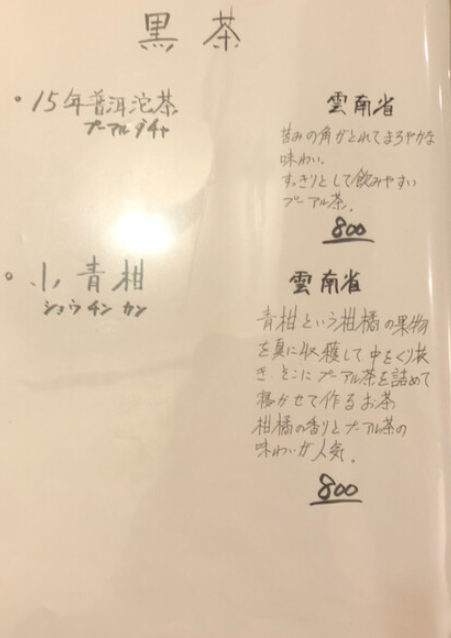 黒茶
・15年普洱沱茶
プーアルダチャ
雲南省
苦みの角がとれてまろやかな
味わい。
すっきりとして飲みやすい
プーアル茶。
800
・小青柑
ショウチンカン
雲南省
青柑という柑橘の果物
を真に収穫して中をくり抜
き そこにプーアル茶を詰めて
寝かせて作るお茶
柑橘の香りとプーアル茶の
味わいが人気。
800